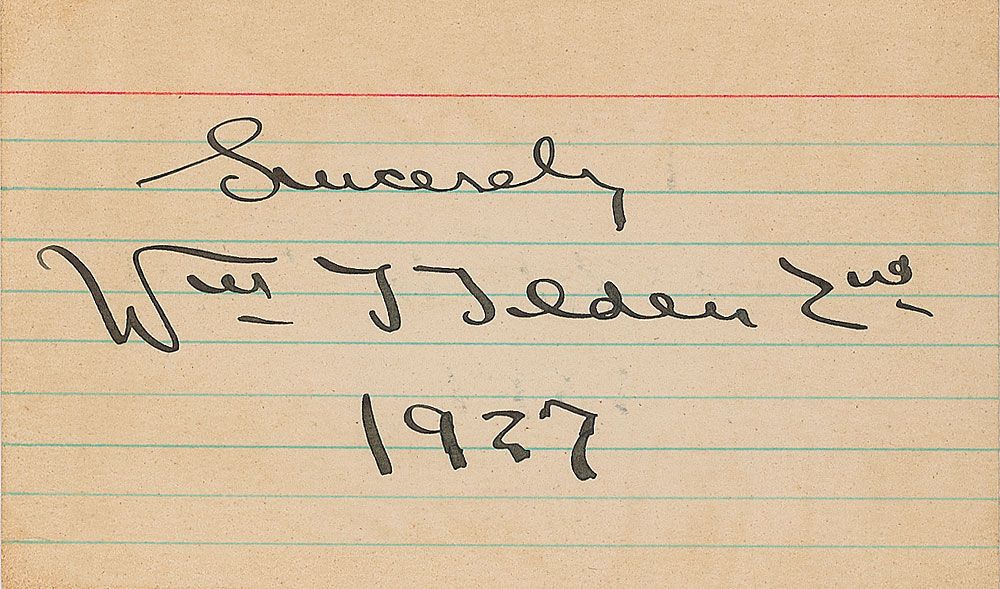 Sincerely
Wm T Tilden 2nd
1937